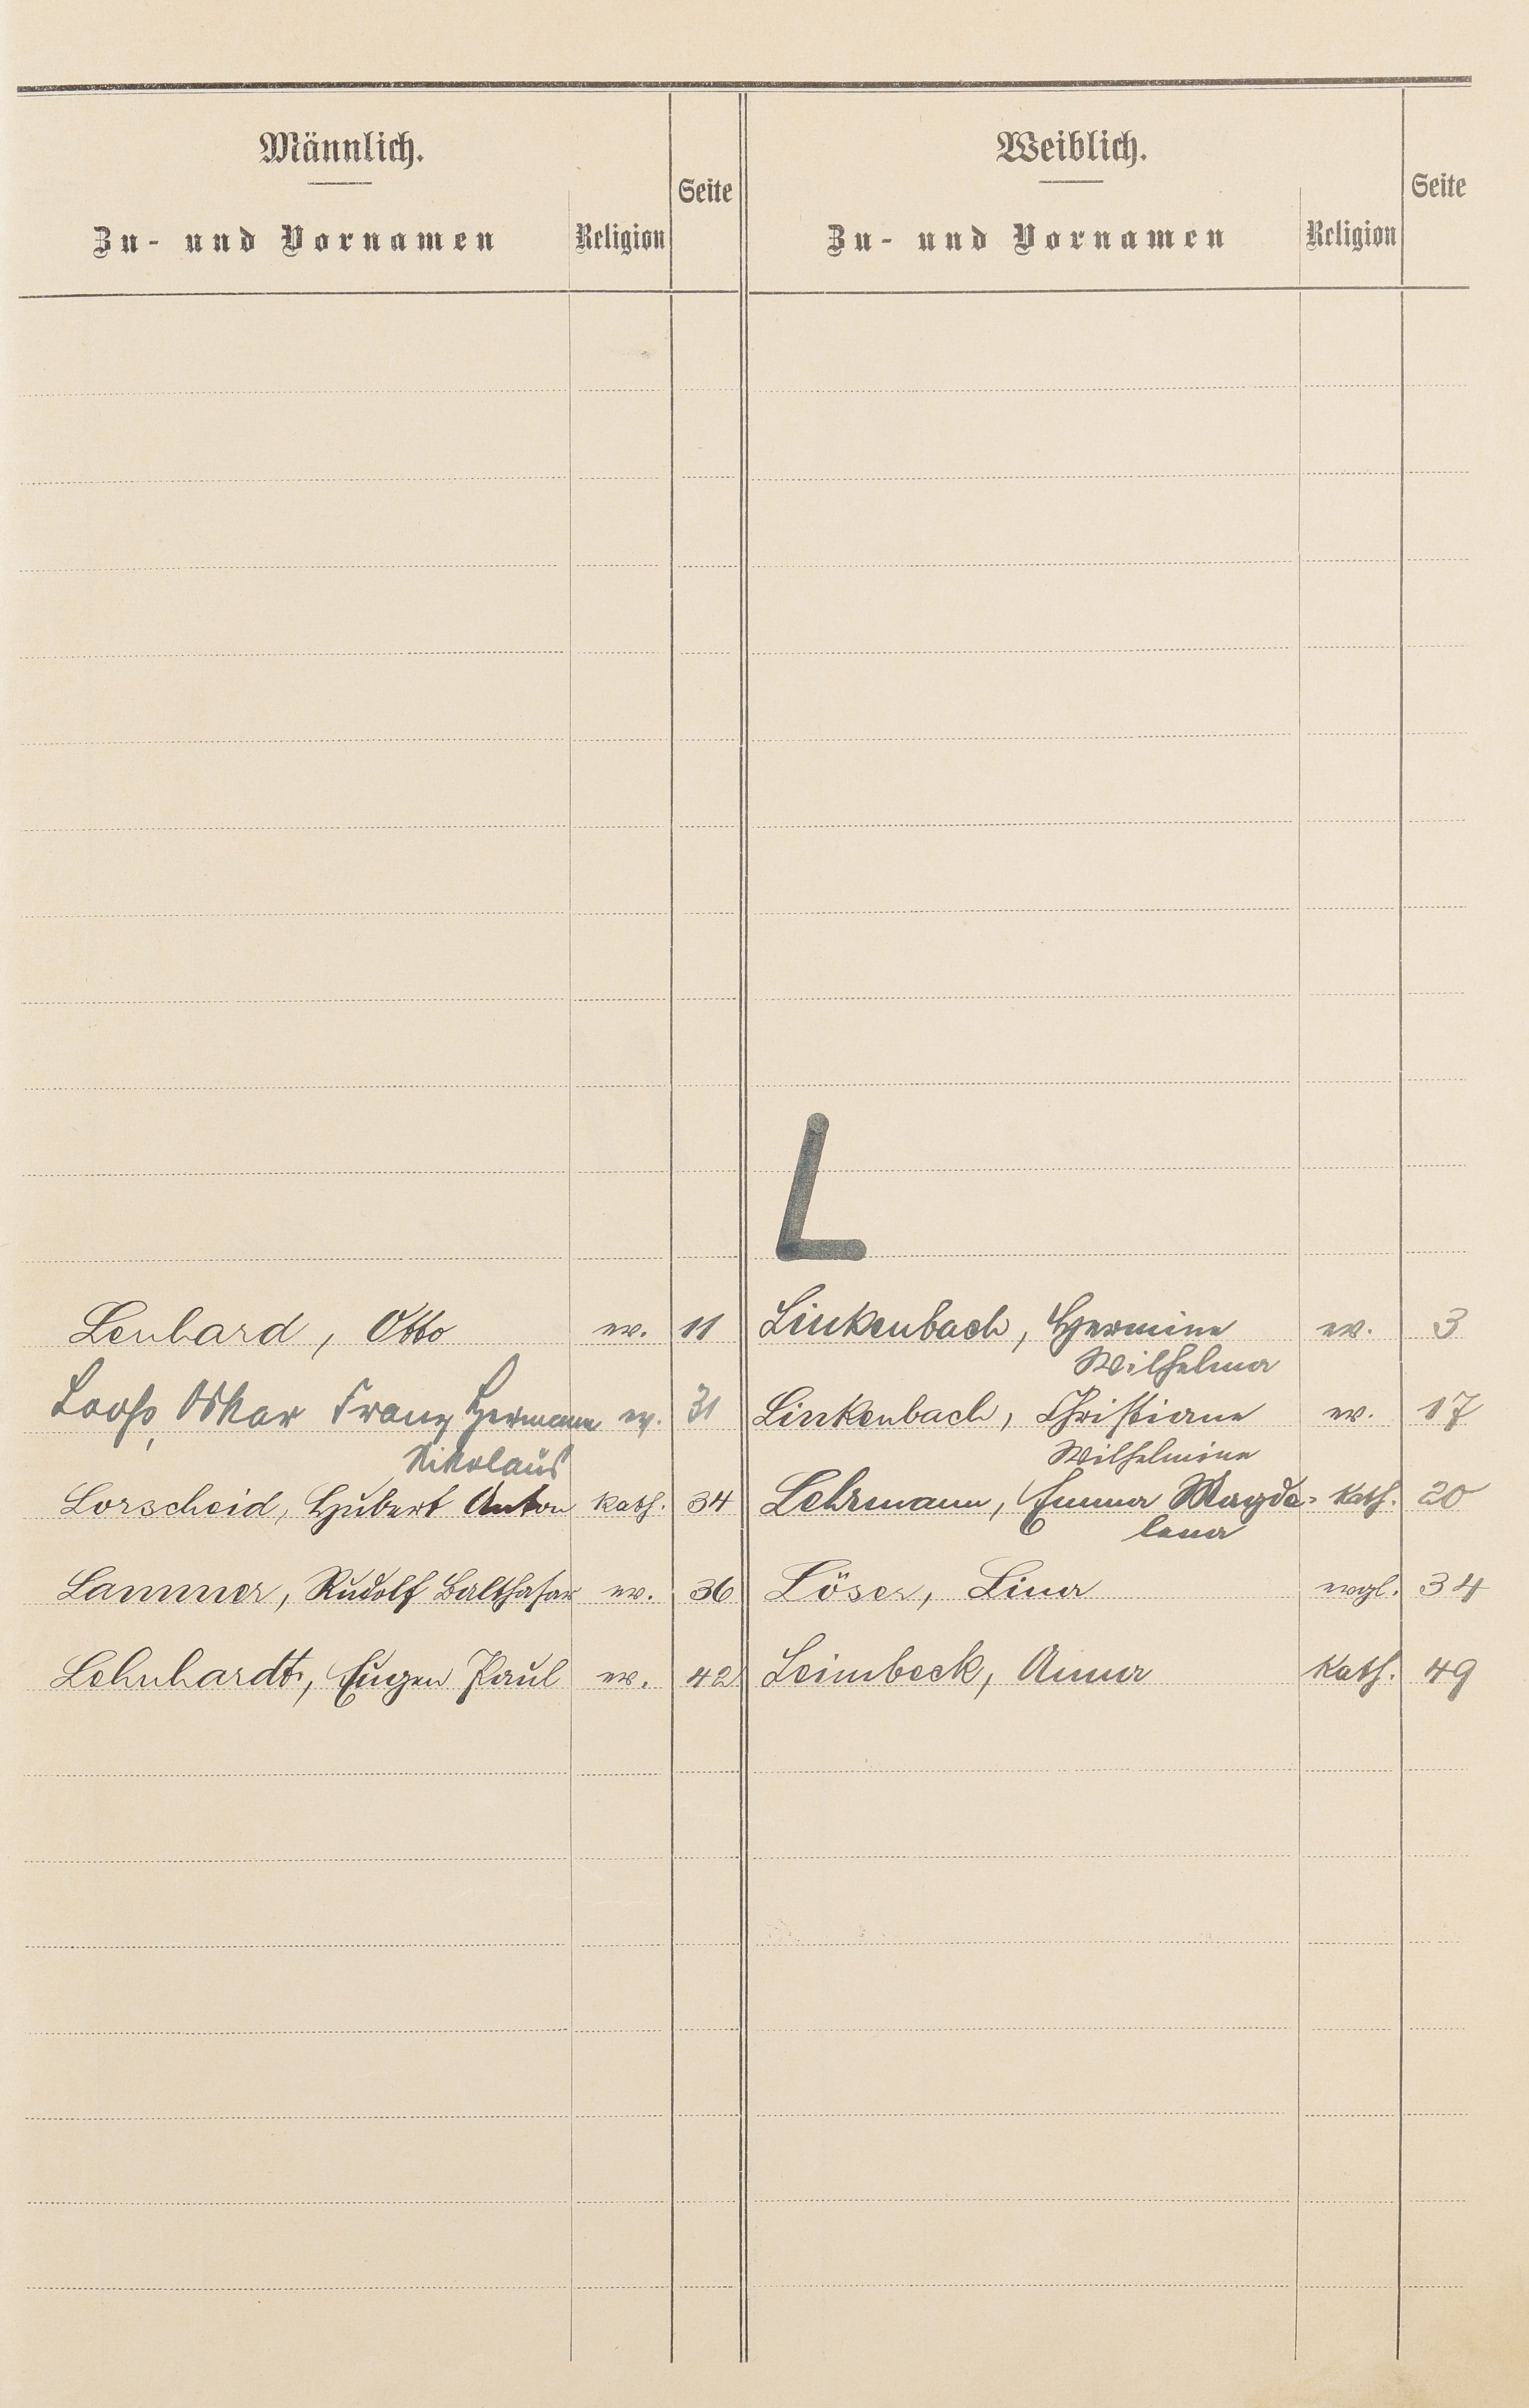 Männlich.
Zu- und Vornamen Religion Seite
Weiblich.
Zu- und Vornamen Religion Seite
L
Lenhard, Otto ev. 11
Loofs, Oskar Franz Hermann ev. 31
Nikolaus
Lorscheid, Hubert Anton kath. 34
Lammer, Rudolf Balthasar ev. 36
Lehnhardt, Eugen Paul ev. 42
Linkenbach, Hermine ev. 3
Wilhelma
Linkenbach, Christiane ev. 17
Wilhelmine
Lehrmann, Emma Magda= kath. 20
lena
Löser, Lina evgl. 34
Leimbeck, Anna kath. 49